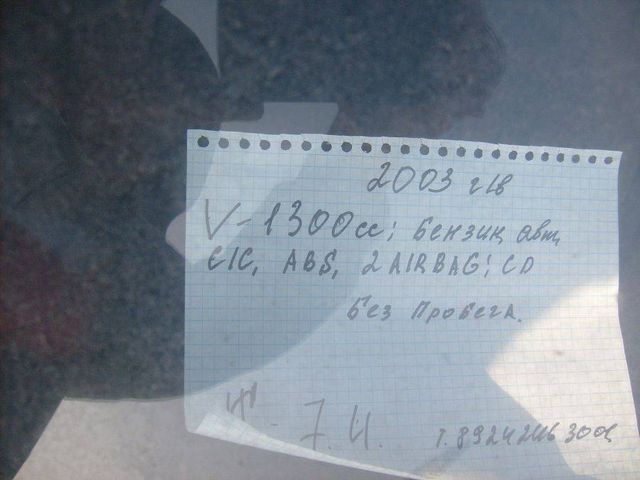 2003 г/в
V-1300cc; Бензин, авт,
C/C, ABS, 2 AIRBAG; CD
Без Пробега.
т.8924